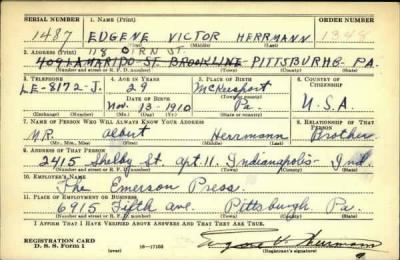 SERIAL NUMBER 1. NAME (Print)
1487 EUGENE VICTOR HERRMANN 1348
(First) (Middle) (Last)
118 OIRN ST.
2. ADDRESS (Print)
409 LAMARIDO ST. BROOKLINE PITTSBURHG- PA.
(Number and street or R. F. D. number) (Town) (County) (State)
3. TELEPHONE 4. AGE IN YEARS 5. PLACE OF BIRTH 6. COUNTRY OF CITIZENSHIP
LE-8172-J. 29 McKeesport
DATE OF BIRTH
Nov. 13-1910 Pa. U.S.A.
(Exchange) (Number) (Mo.) (Day) (Yr.) (State or country)
7. NAME OF PERSON WHO WILL ALWAYS KNOW YOUR ADDRESS 8. RELATIONSHIP OF THAT PERSON
MR. Albert Herrmann Brother
(Mr., Mrs., Miss) (First) (Middle) (Last)
9. ADDRESS OF THAT PERSON
2415 Shelby St. apt. 11. Indianapolis- Ind.
(Number and street or R. F. D. number) (Town) (County) (State)
10. EMPLOYER'S NAME
The Emerson Press.
11. PLACE OF EMPLOYMENT OR BUSINESS
6915 Fifth ave. Pittsburgh. Pa.
(Number and street or R. F. D. number) (Town) (County) (State)
I AFFIRM THAT I HAVE VERIFIED ABOVE ANSWERS AND THAT THEY ARE TRUE.
REGISTRATION CARD
D. S. S. Form 1 (over) 16-17105 Eugene V. Herrmann
(Registrant's signature)